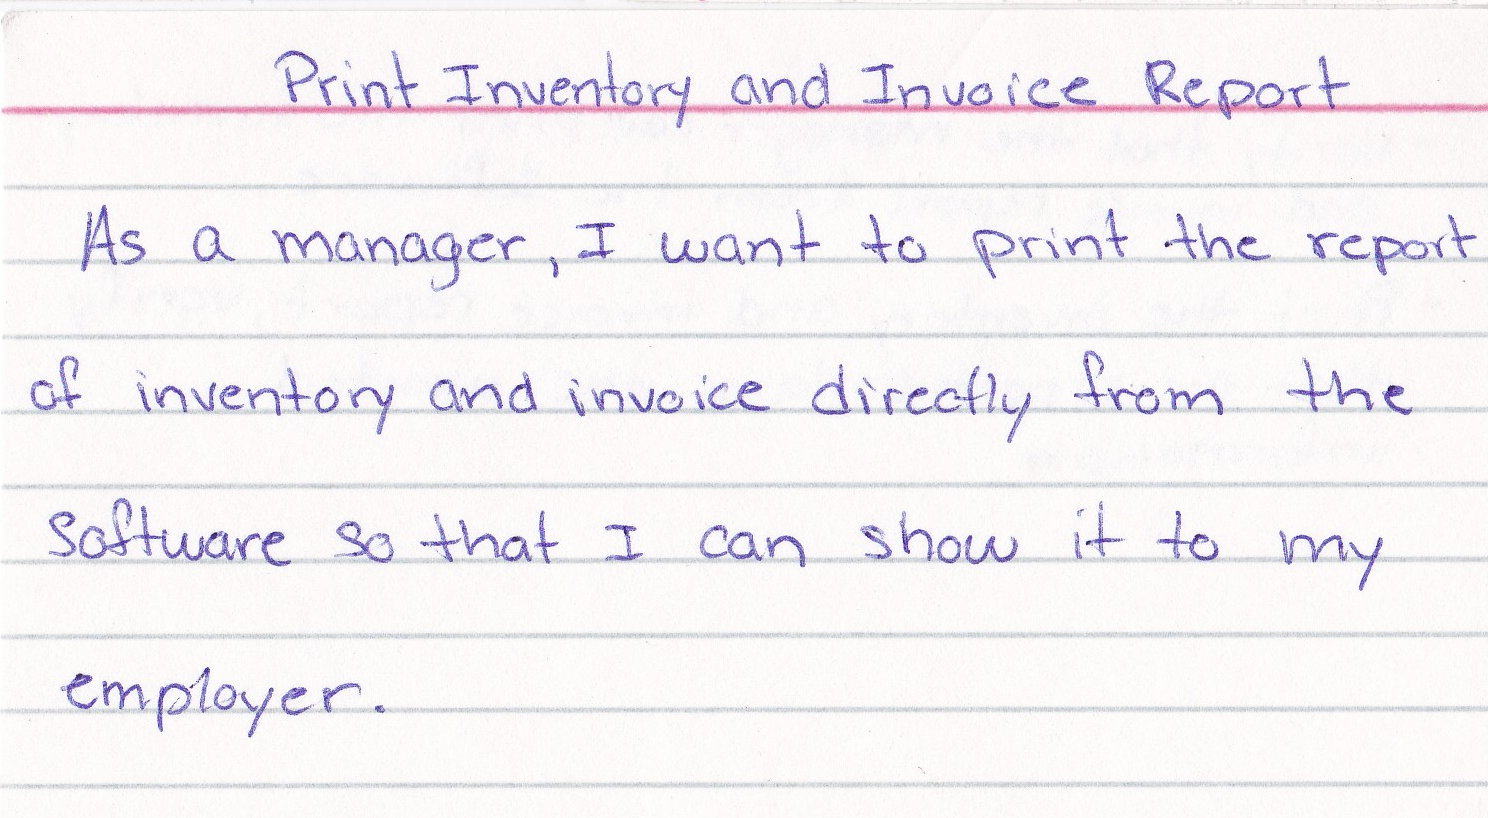 Print Inventory and Invoice Report
As a manager, I want to print the report
of inventory and invoice directly from the
software so that I can show it to my
employer.